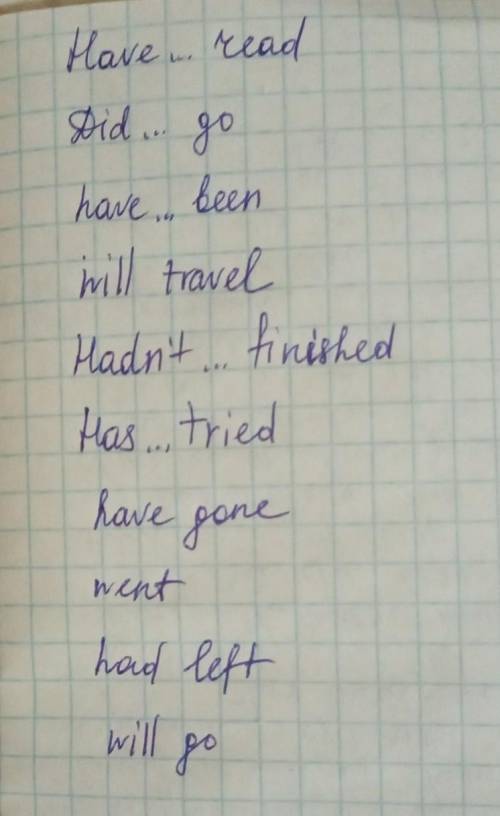 Have... read
Did... go
have... been
will travel
Hadn't... finished
Has... tried
have gone
went
had left
will go